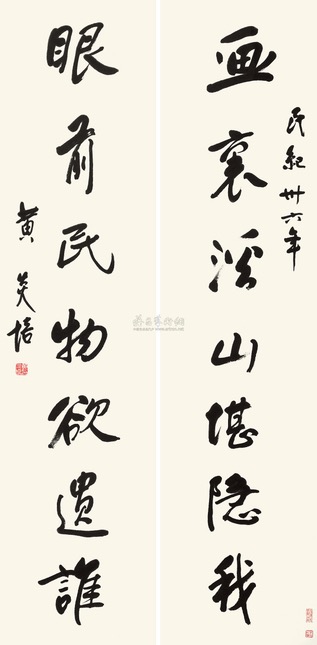 画裏溪山堪隱我
民紀卅六年
眼前民物欲遺誰
黄炎培